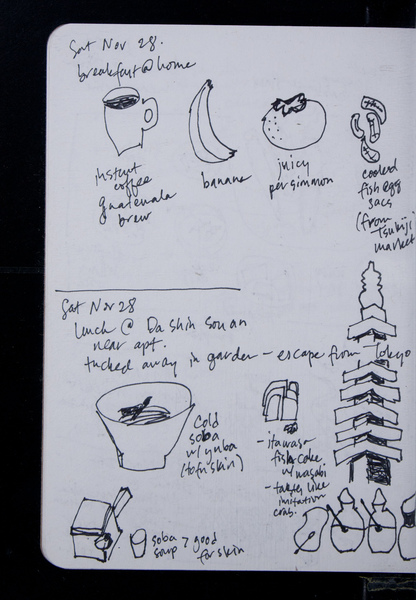 Sat Nov 28.
breakfast@home
instant
coffee
guatemala
brew
banana
juicy
persimmon
cooked
fish egg
sacs
(from
Tsukiji
market
Sat Nov 28
lunch @ Da shin sou an
near apt.
tucked away in garden - escape from Tokyo
cold
soba
w/ yuba
(tofu skin)
- itawasa
fish cake
w/ wasabi
- tastes like
imitation
crab.
soba > good
soup for skin